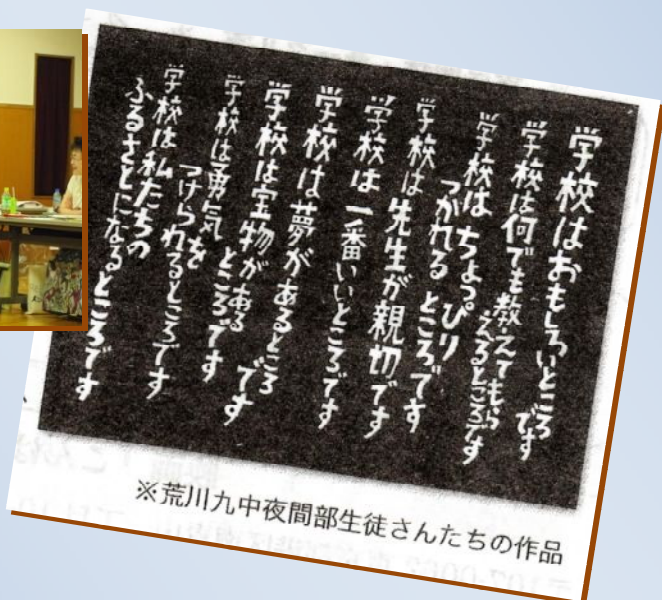 学校はおもしろいところ
です
学校は何でも教えてもら
えるところです
学校は ちょっぴり
つかれる ところです
学校は先生が親切です
学校は一番いいところです
学校は夢があるところ
です
学校は宝物がある
ところです
学校は勇気を
つけられるところです
学校は私たちの
ふるさとになるところです
※荒川九中夜間部生徒さんたちの作品